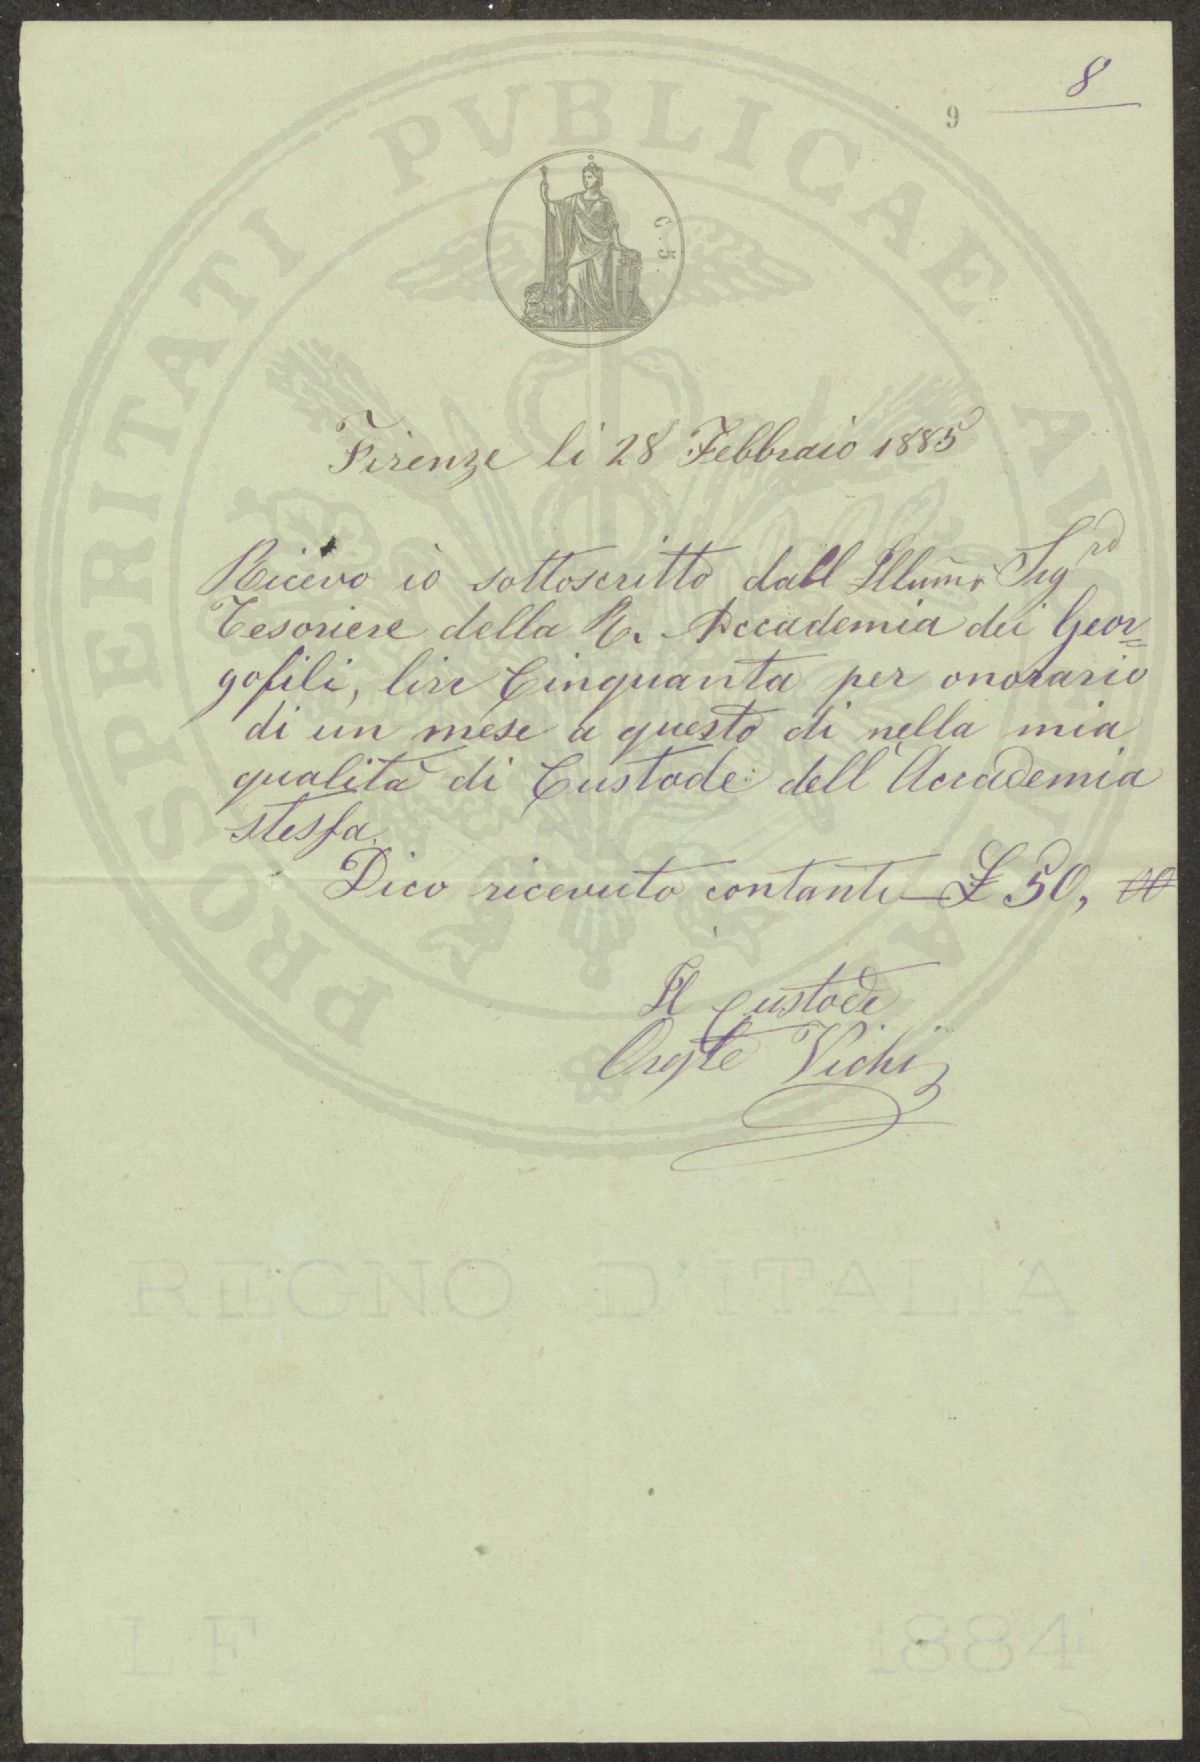 8
9
PROSPERITATI PVBLICAE AVGENDAE
C. 5.
Firenze li 28 Febbraio 1885
Ricevo io sottoscritto dall Illum̃o Sig.rd
Tesoriere della R. Accademia dei Geor=
gofili, lire Cinquanta per onorario
di un mese a questo di nella mia
qualità di Custode dell'Accademia
stessa.
Dico ricevuto contanti £ 50, 00
Il Custode
Oreste Vichi
REGNO D'ITALIA
LF 1884